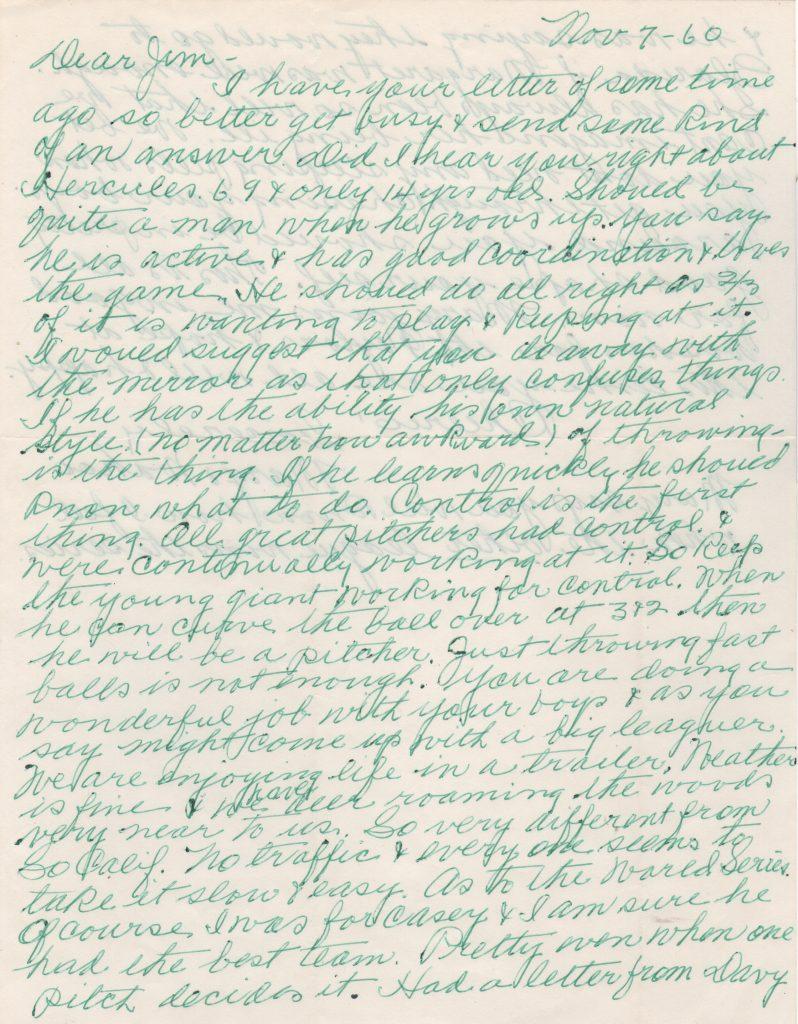 Nov 7-60
Dear Jim-
I have your letter of some time
ago so better get busy & send some kind
of an answer. Did I hear you right about
Hercules. 6.9 & only 14 yrs old. Should be
quite a man when he grows up. you say
he is active & has good coordination & loves
the game. He should do all right as 2/3
of it is wanting to play & keeping at it.
I would suggest that you do away with
the mirror as that only confuses things.
If he has the ability his own natural
style (no matter how awkward) of throwing-
is the thing. If he learns quickly he should
know what to do. Control is the first
thing. All great pitchers had control. &
were continually working at it. So keep
the young giant working for control. When
he can curve the ball over at 3&2 then
he will be a pitcher. Just throwing fast
balls is not enough. You are doing a
wonderful job with your boys & as you
say might come up with a big leaguer.
We are enjoying life in a trailer. Weather
is fine & we have deer roaming the woods
very near to us. So very different from
So Calif. No traffic & every one seems to
take it slow & easy. As to the World Series.
Of course I was for Casey & I am sure he
had the best team. Pretty even when one
pitch decides it. Had a letter from Davy